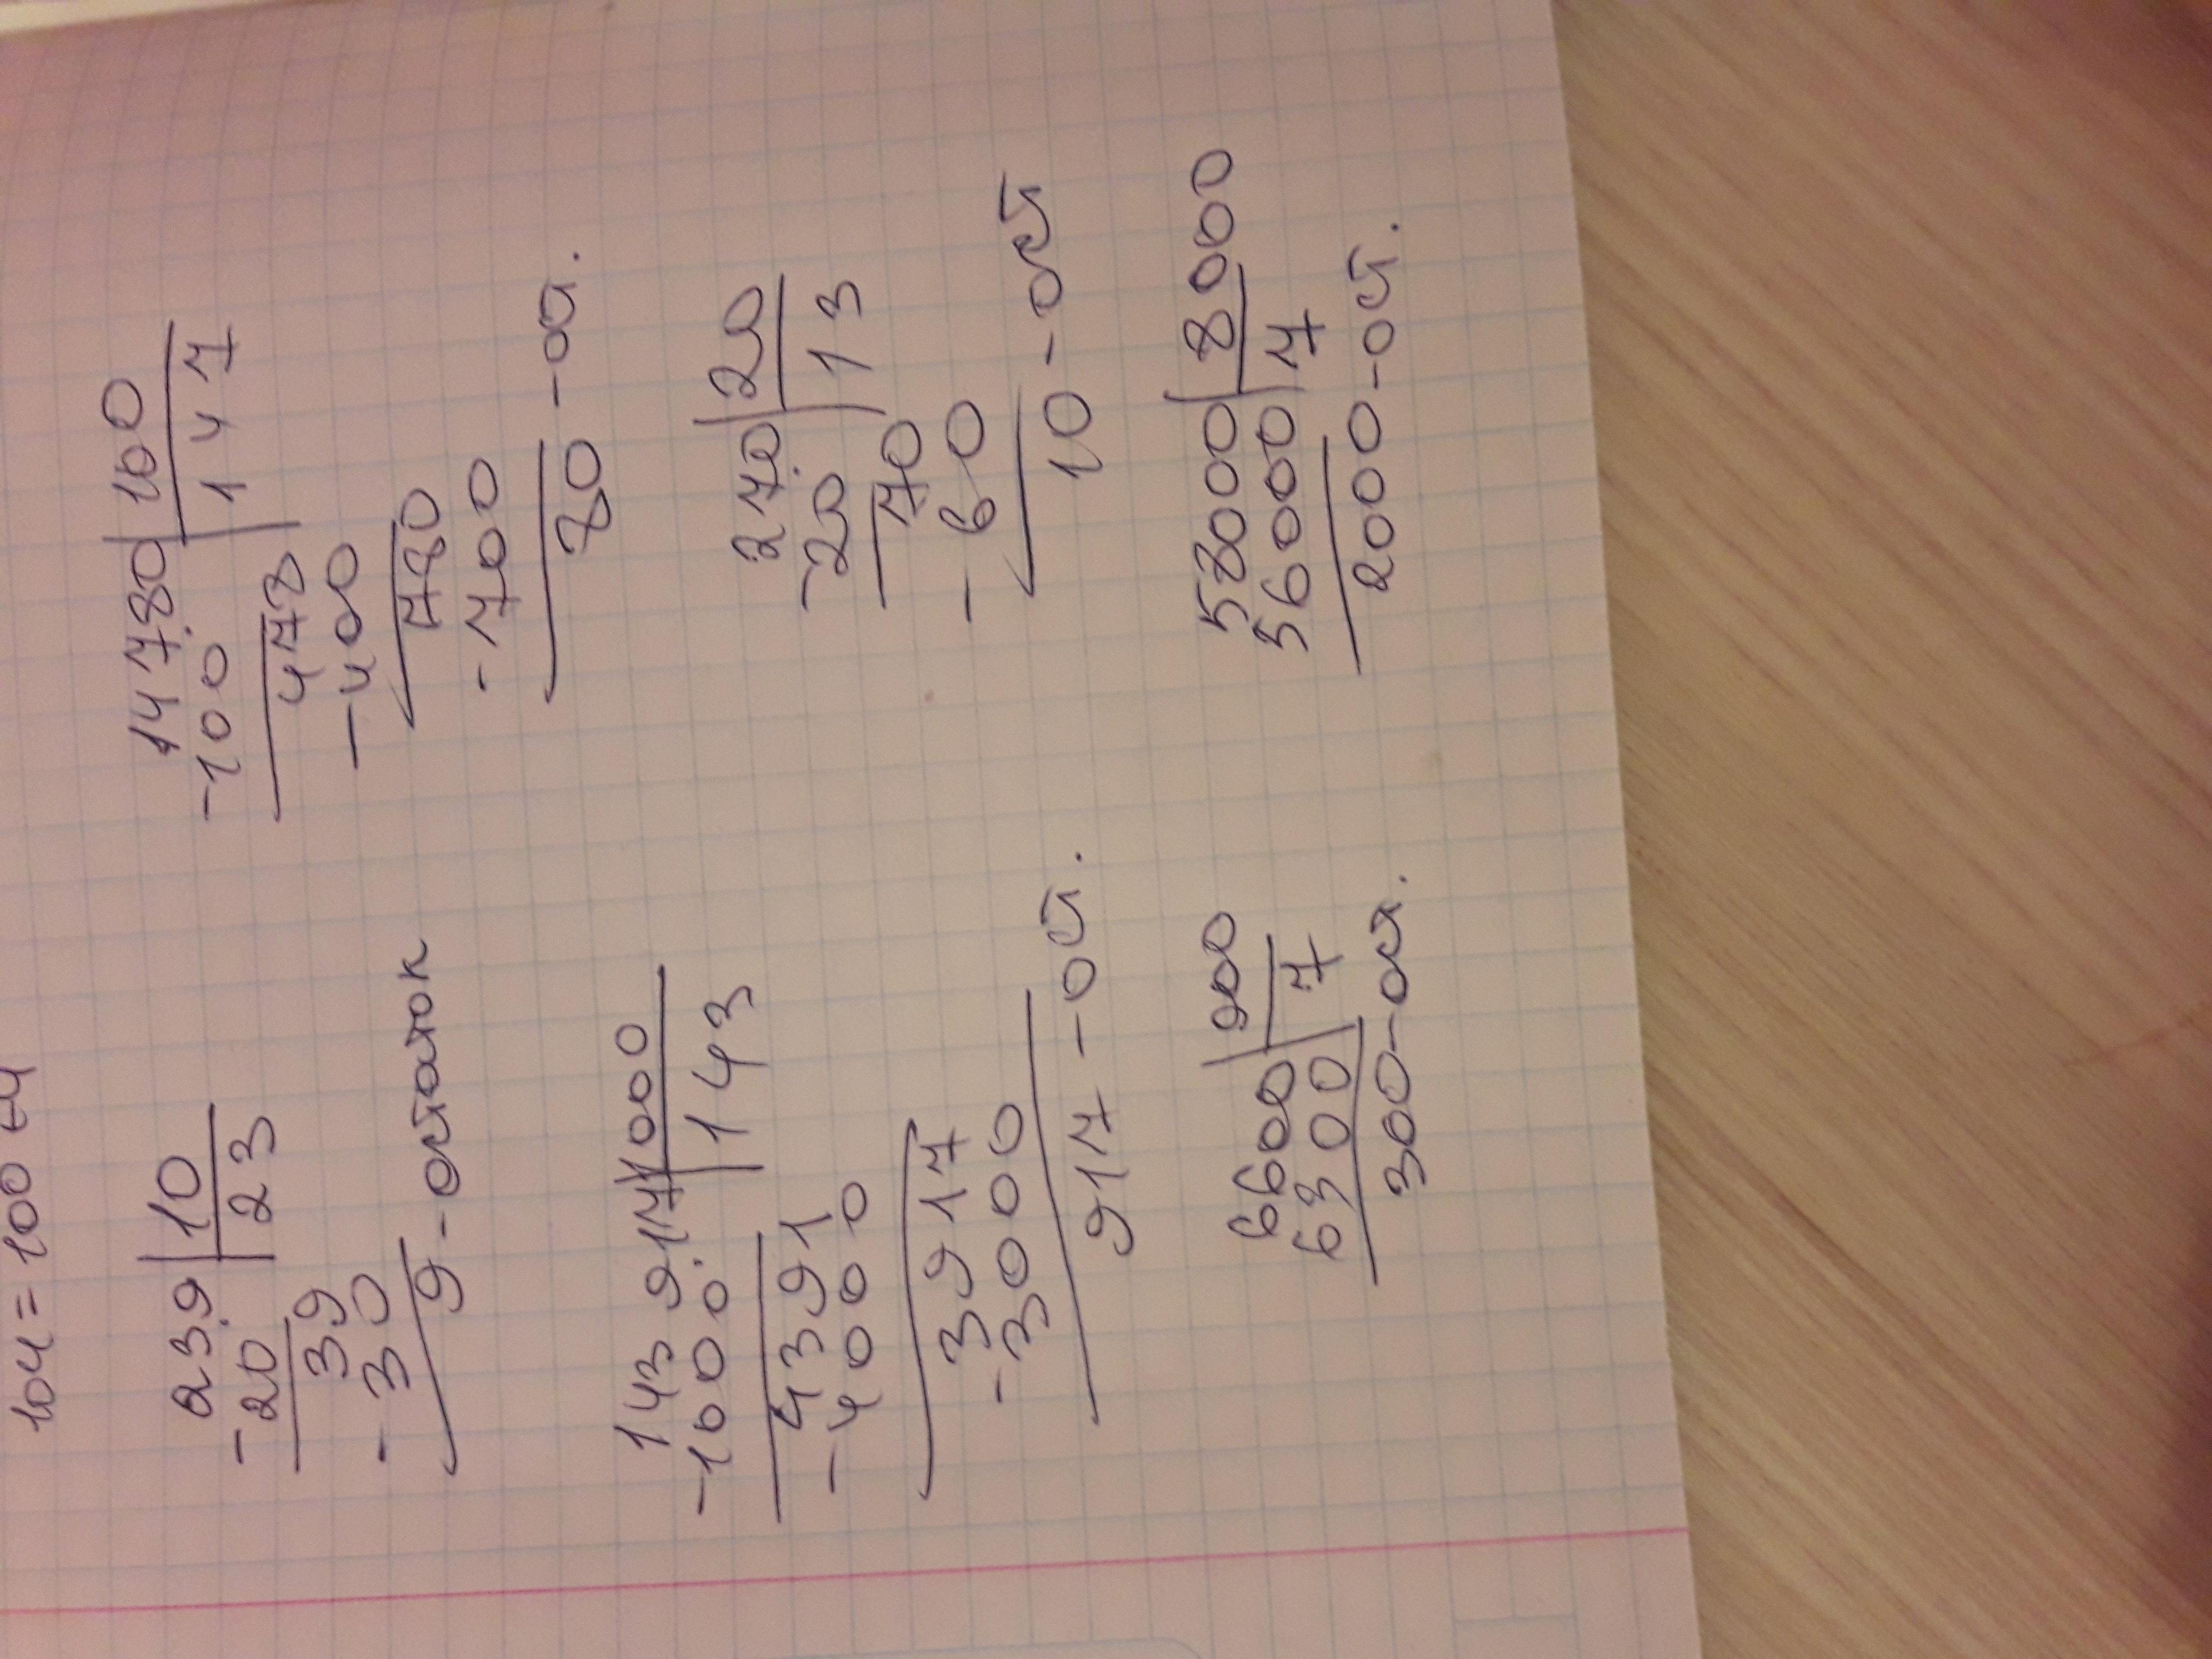 239 | 10
-20 | 23
39
-30
9 - остаток
14780 | 100
-100 | 147
478
-400
780
-700
80 - ост.
143917 | 1000
-1000 | 143
4391
-4000
3917
-3000
917 - ост.
270 | 20
-20 | 13
70
-60
10 - ост
6600 | 900
6300 | 7
300 - ост.
58000 | 8000
56000 | 7
2000 - ост.